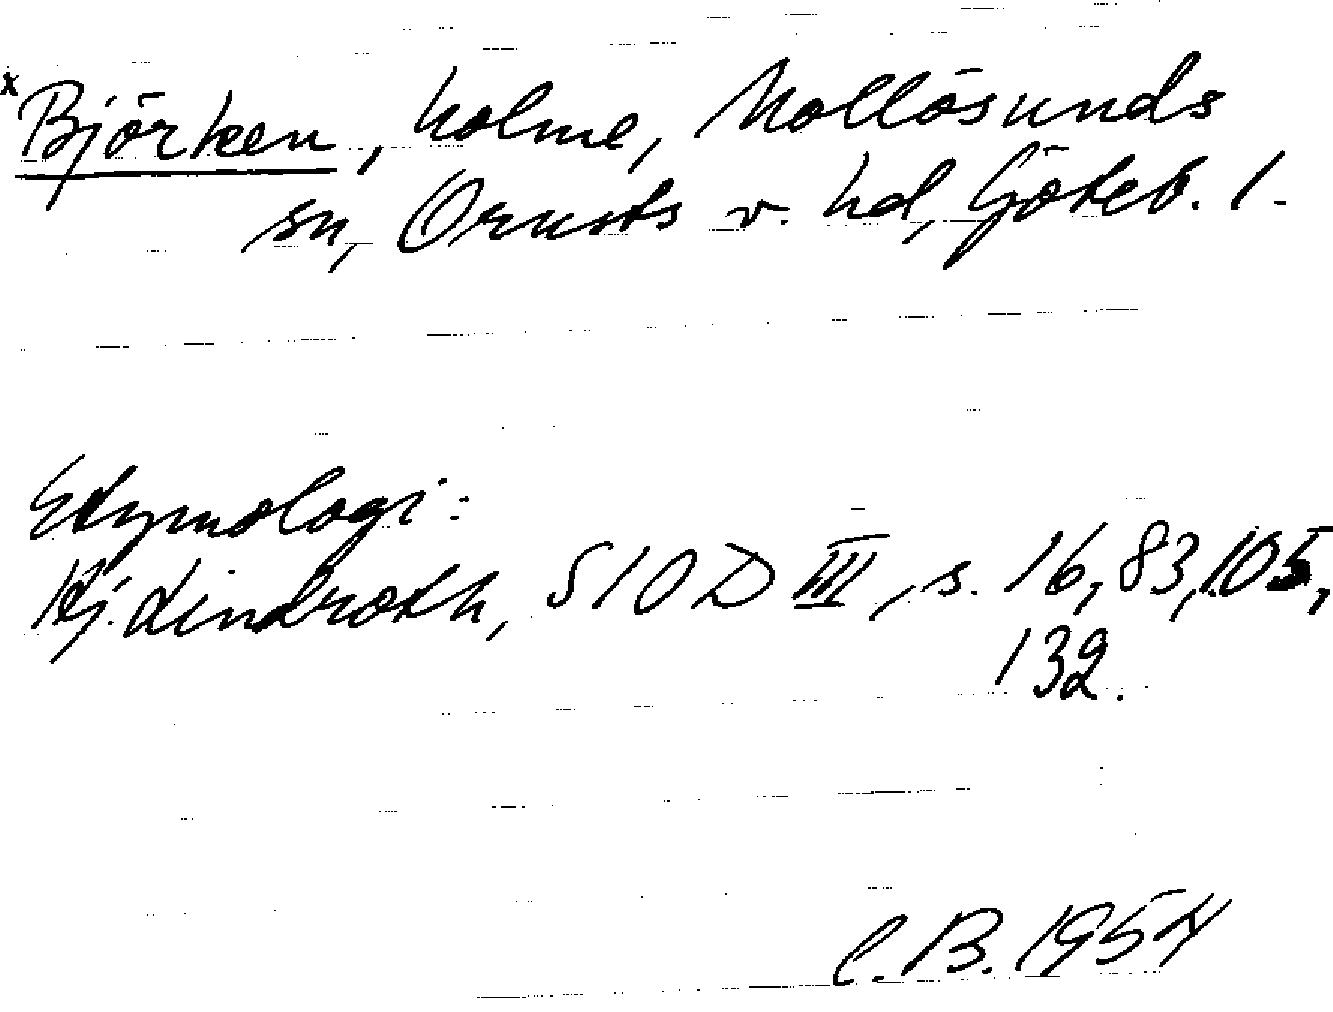 x Björken, holme, Mollösunds
sn, Orusts v. hd, Göteb. l.
Etymologi:
Hj. Lindroth, SIOD III, s. 16, 83, 105,
132.
C.B. 1954